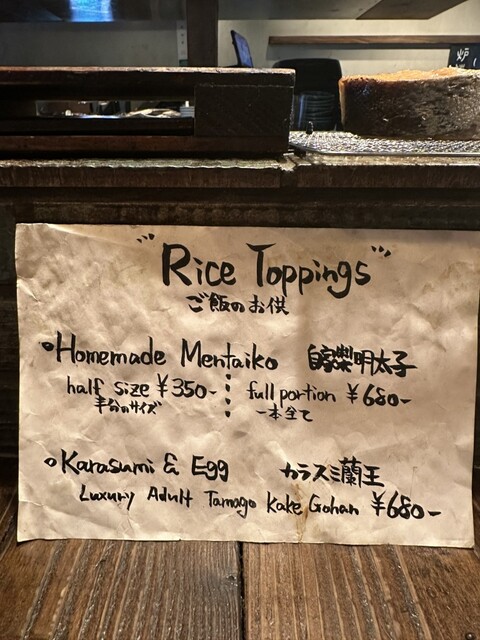 "Rice Toppings"
ご飯のお供
Homemade Mentaiko 自家製明太子
half size ¥350- full portion ¥680-
半分のサイズ 一本全て
Karasumi & Egg カラスミ蘭王
Luxury Adult Tamago Kake Gohan ¥680-